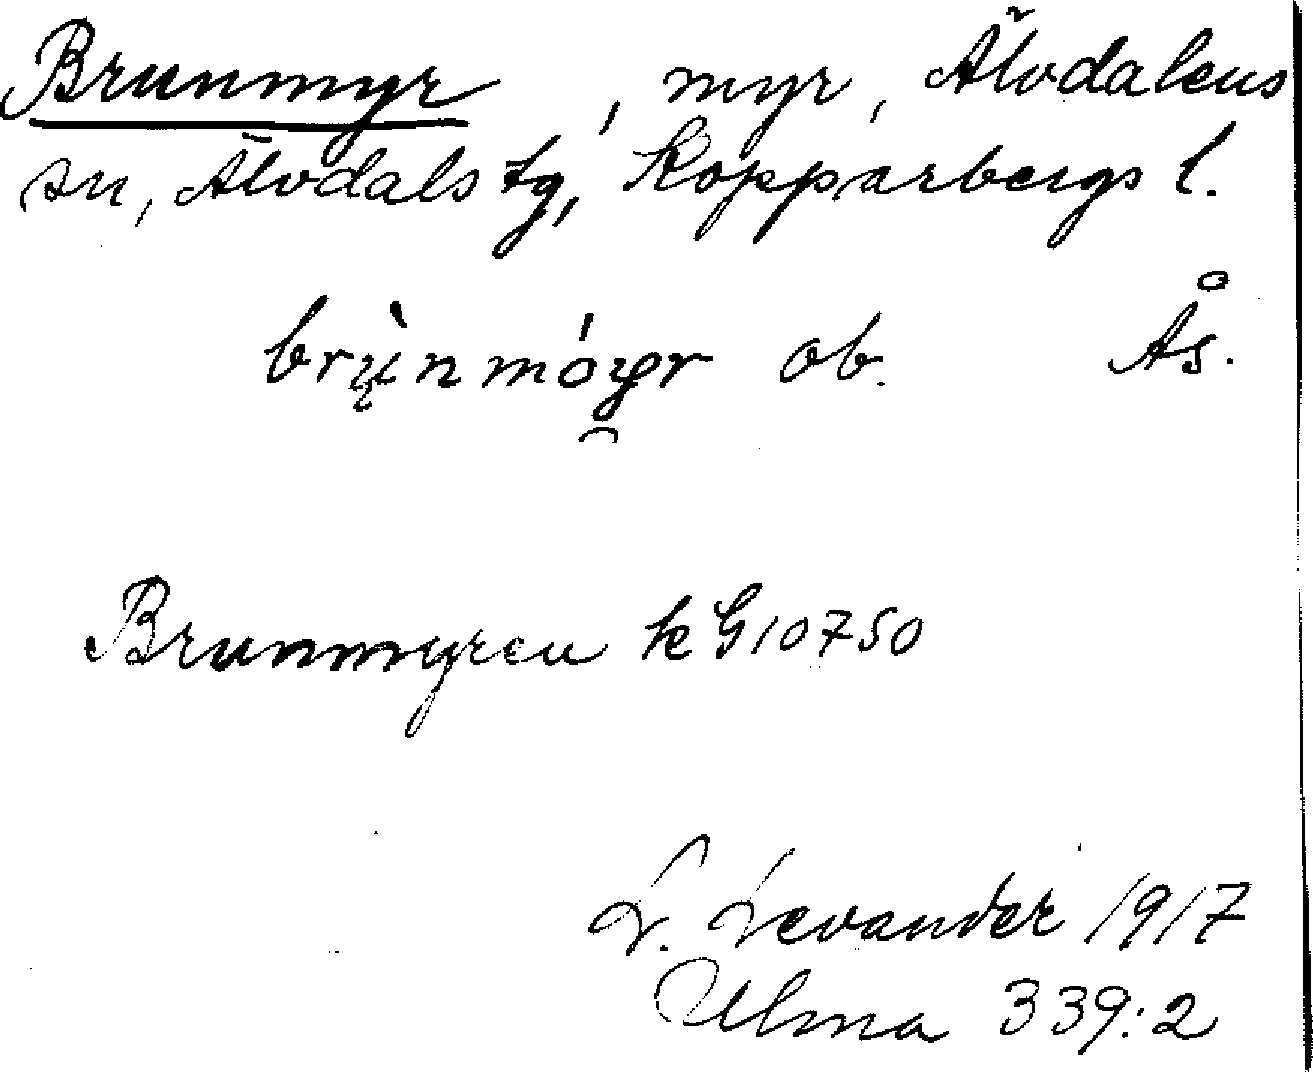 Brunmyr, myr, Älvdalens
sn, Älvdals tg, Kopparbergs l.
brų̀nmóyr ob. Ås.
Brunmyren kG10750
L. Levander 1917
Ulma 339:2